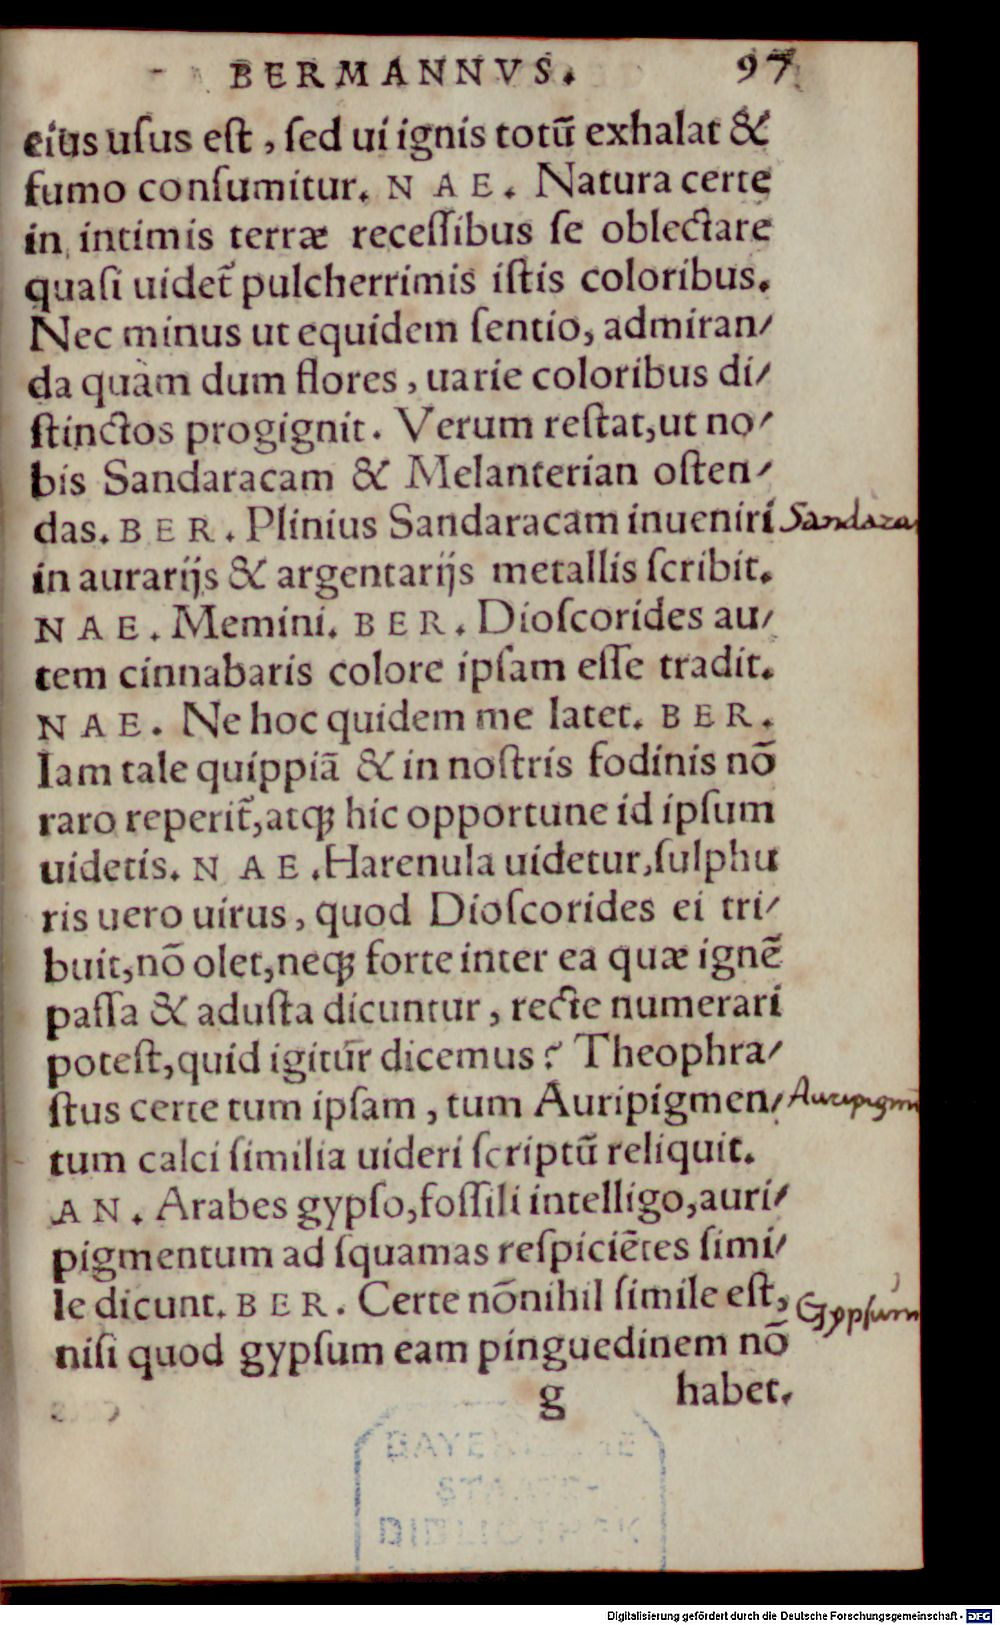 BERMANNVS. 97
eius uſus eſt, ſed ui ignis totũ exhalat &
fumo conſumitur. NAE. Natura certe
in intimis terræ receſſibus ſe oblectare
quaſi uidet̃ pulcherrimis iſtis coloribus.
Nec minus ut equidem ſentio, admiran/
da quàm dum flores, uarie coloribus di/
ſtinctos progignit. Verum reſtat, ut no/
bis Sandaracam & Melanterian oſten/
das. BER. Plinius Sandaracam inueniri
Sandara
in aurarijs & argentarijs metallis ſcribit.
NAE. Memini. BER. Dioſcorides au/
tem cinnabaris colore ipſam eſſe tradit.
NAE. Ne hoc quidem me latet. BER.
Iam tale quippiã & in noſtris fodinis nõ
raro reperit̃, atq; hic opportune id ipſum
uidetis. NAE. Harenula uidetur, ſulphu
ris uero uirus, quod Dioſcorides ei tri/
buit, nõ olet, neq; forte inter ea quæ ignẽ
paſſa & aduſta dicuntur, recte numerari
poteſt, quid igitur̃ dicemus? Theophra/
ſtus certe tum ipſam, tum Auripigmen/
Auripigm
tum calci ſimilia uideri ſcriptũ reliquit.
AN. Arabes gypſo, foſſili intelligo, auri/
pigmentum ad ſquamas reſpiciẽtes ſimi/
le dicunt. BER. Certe nõnihil ſimile eſt,
Gypſum
niſi quod gypſum eam pinguedinem nõ
g habet.
BAYERISCHE
STAATS-
BIBLIOTHEK
Digitalisierung gefördert durch die Deutsche Forschungsgemeinschaft - DFG